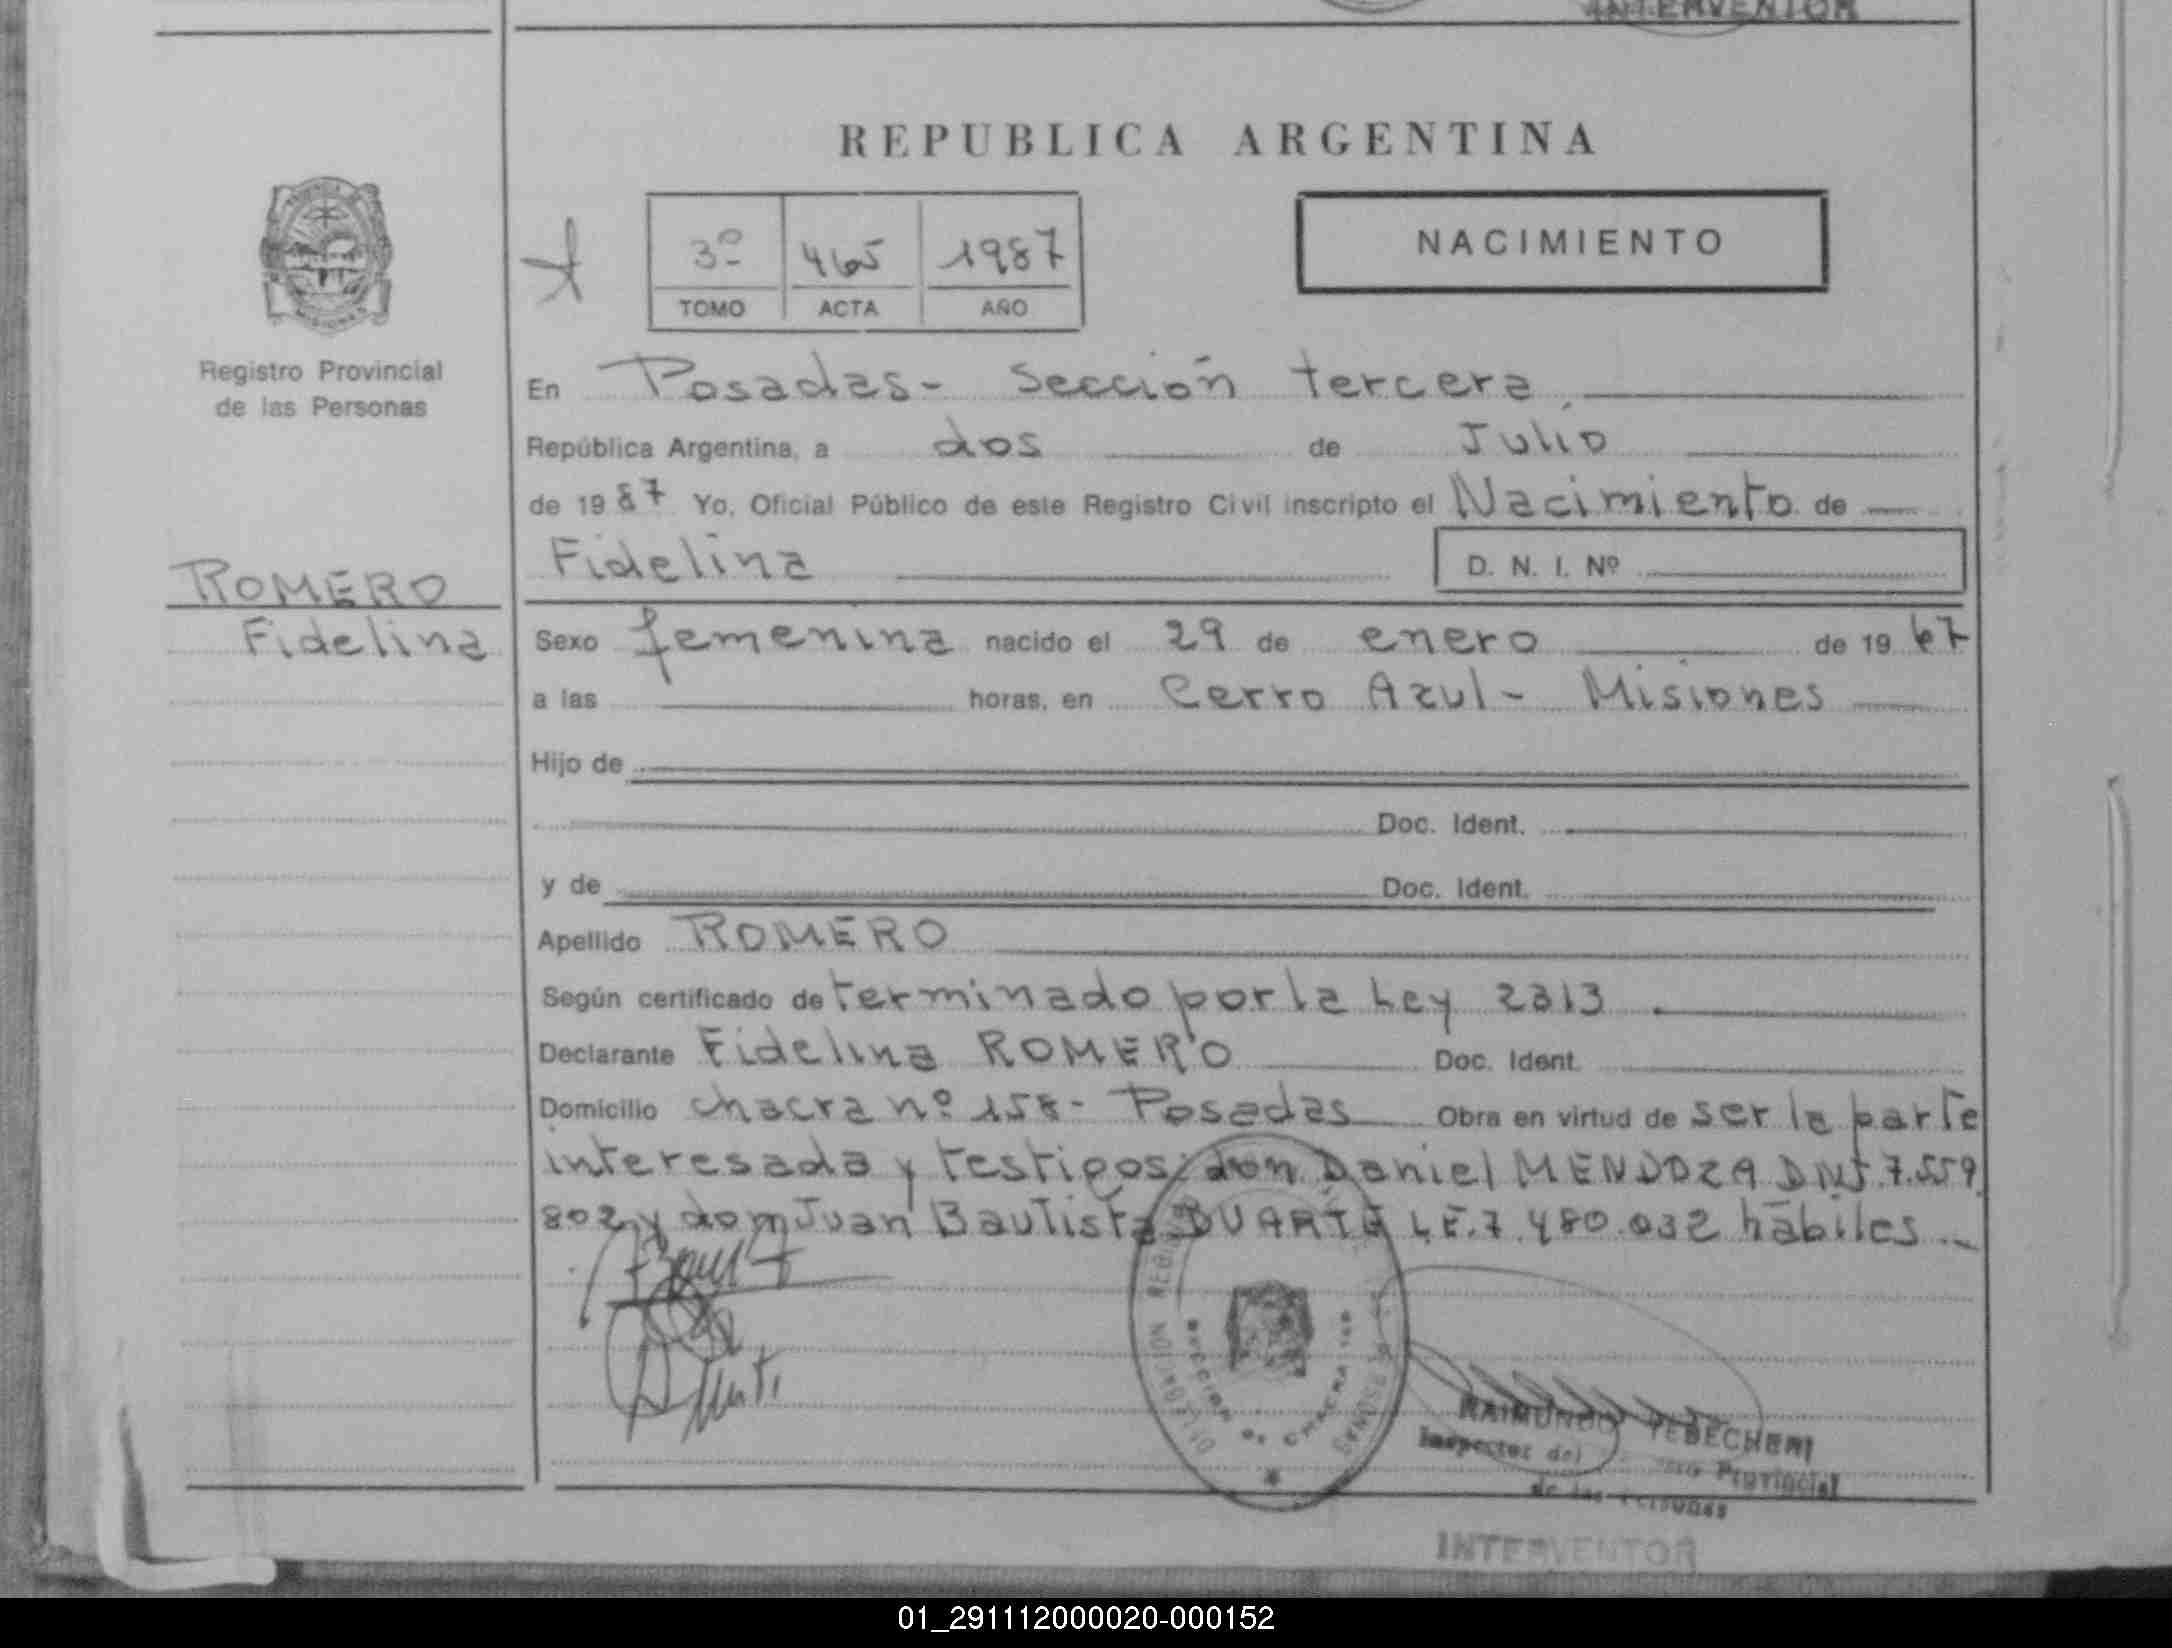 INTERVENTOR
REPUBLICA ARGENTINA
3º 465 1987
TOMO ACTA AÑO
NACIMIENTO
Registro Provincial
de las Personas
En Posadas - Sección tercera
República Argentina, a dos de Julio
de 1987 Yo, Oficial Público de este Registro Civil inscripto el Nacimiento de
Fidelina D. N. I. Nº
ROMERO
Fidelina
Sexo femenina nacido el 29 de enero de 1967
a las horas, en Cerro Azul - Misiones
Hijo de
Doc. Ident.
y de Doc. Ident.
Apellido ROMERO
Según certificado determinado por la Ley 2313
Declarante Fidelina ROMERO Doc. Ident.
Domicilio chacra nº 158 - Posadas Obra en virtud de ser la parte
interesada y testigos: don Daniel MENDOZA DNI. 7.559.
802 y don Juan Bautista DUARTE L.E. 7.480.032 hábiles
RAIMUNDO TEBECHERI
Inspector del Provincial
de las Personas
INTERVENTOR
01_291112000020-000152